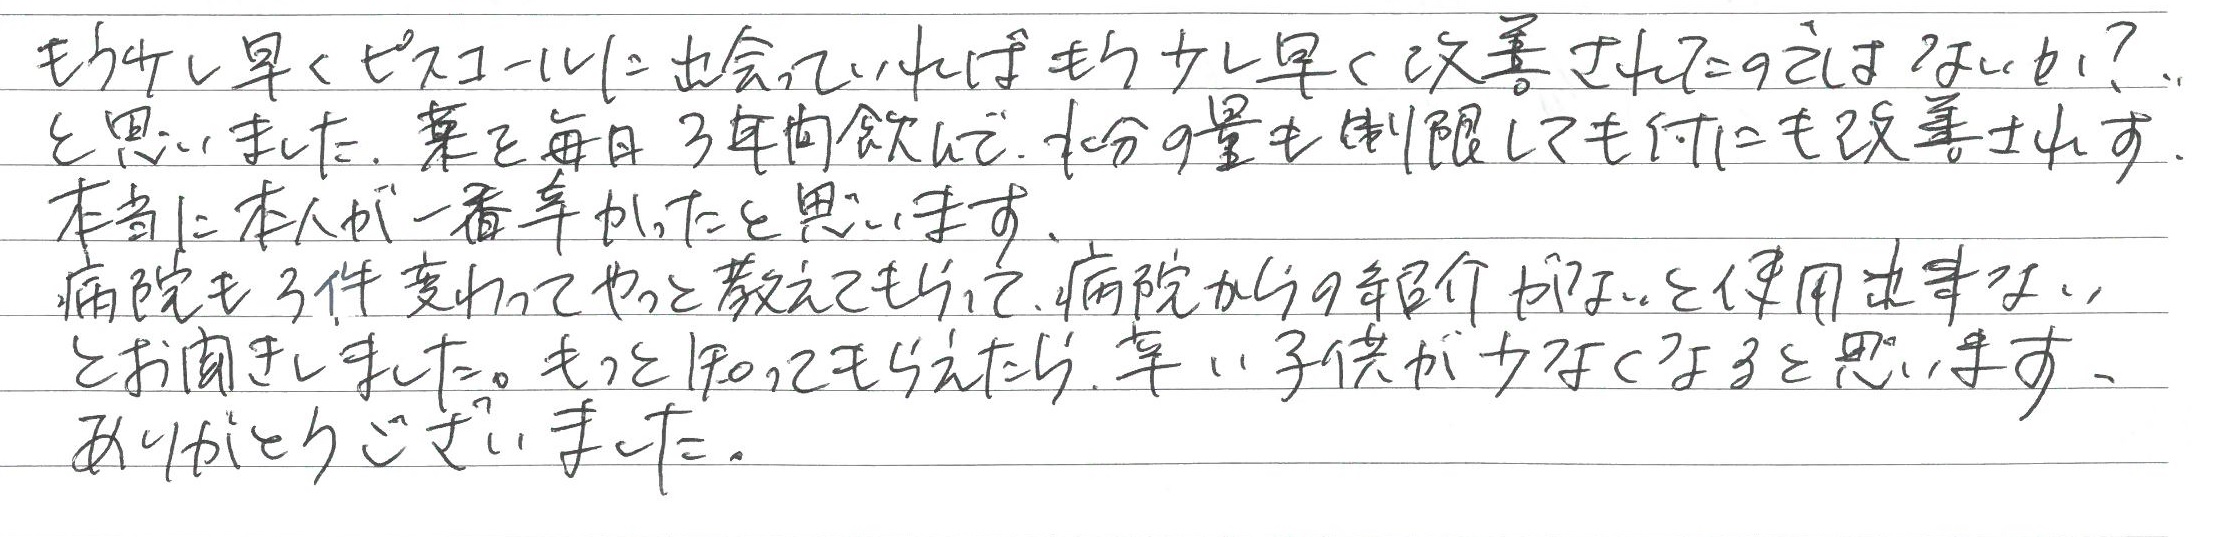 もう少し早くピスコールに出会っていればもう少し早く改善されたのではないか?..
と思いました。薬を毎日3年間飲んで、水分の量も制限しても何にも改善されず、
本当に本人が一番辛かったと思います、
病院も3件変わってやっと教えてもらって、病院からの紹介がないと使用出来ない
とお聞きしました。もっと知ってもらえたら、辛い子供が少なくなると思います、
ありがとうございました。